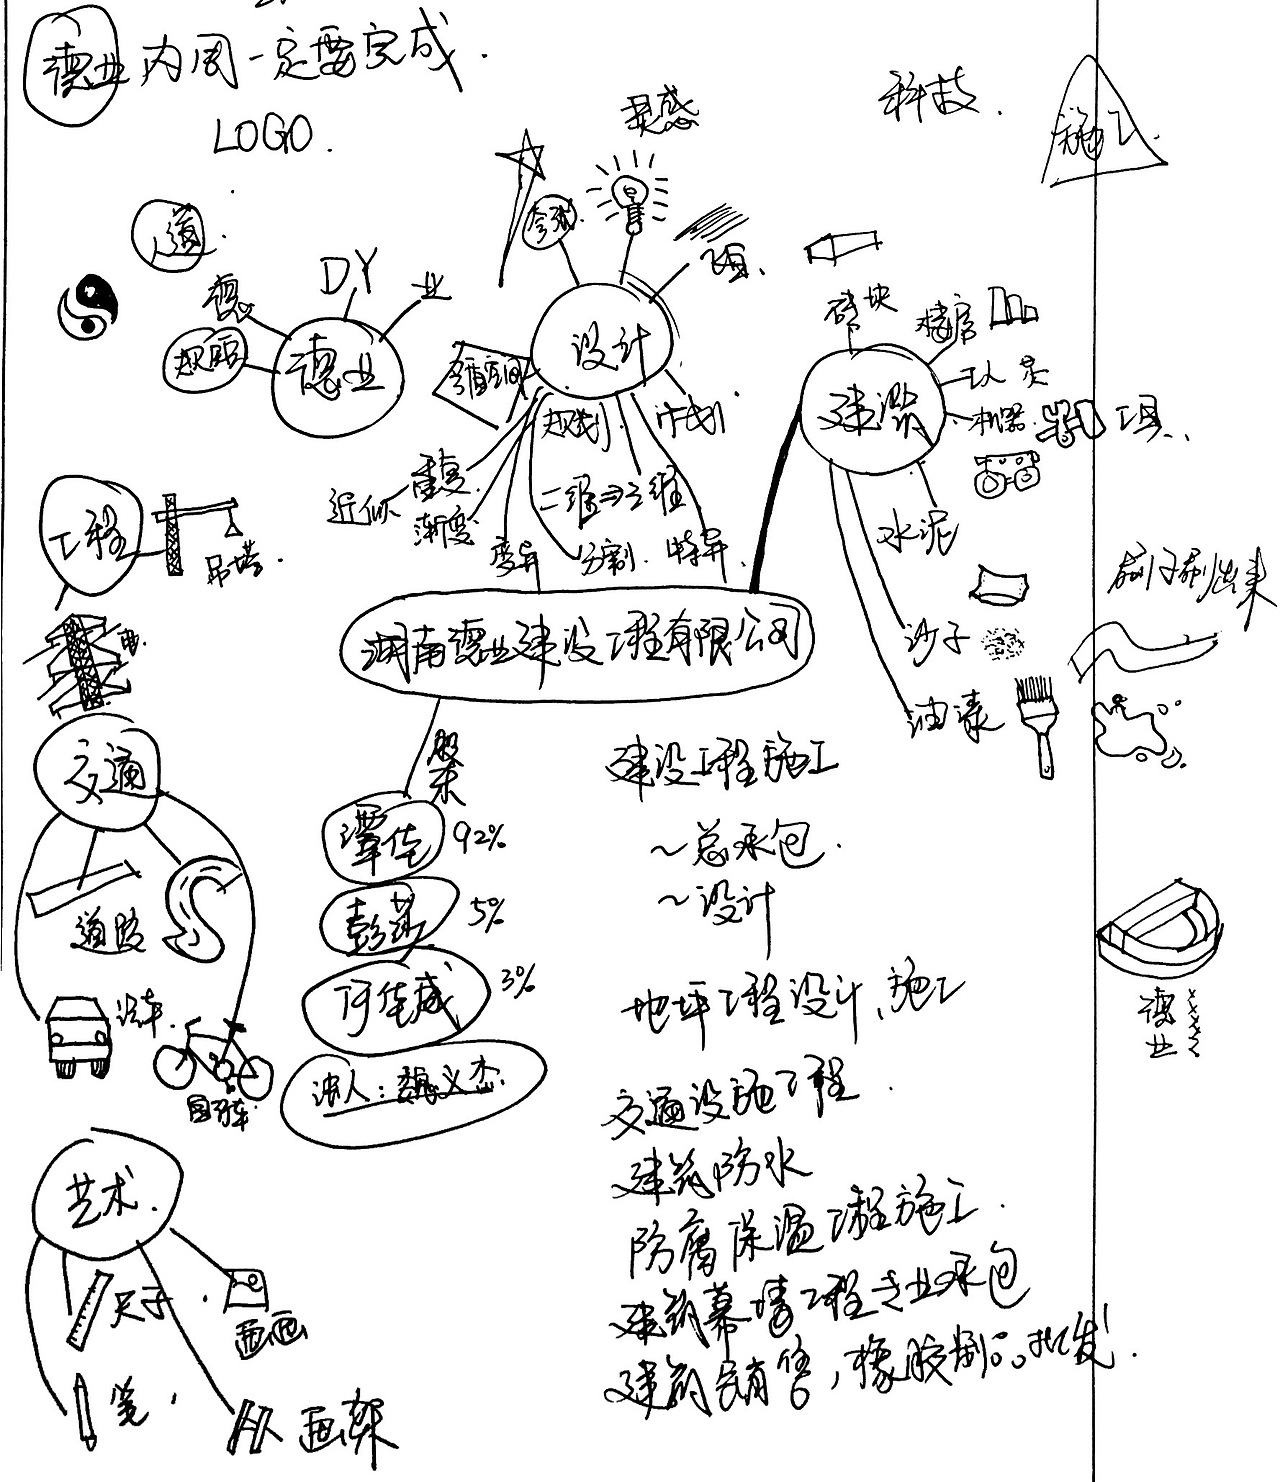 德业内周一定要完成.
LOGO.
灵感
科技.
施工.
道.
德
DY
业
德业
设计
飞.
砖块
楼房
工人员
建筑
机器
工具.
规划.
计划
重复.
近似
渐变
二维⇒三维
变异
分割.
特异
水泥
工程
吊塔.
电.
刷子刷出来
湖南德业建设工程有限公司
沙子
油漆
交通
股东
覃佳
92%
彭
5%
何佳威
3%
法人:魏义杰.
道路
汽车.
自行车.
建设工程施工
~总承包.
~设计
地坪工程设计、施工
交通设施工程.
建筑防水
防腐保温工程施工.
建筑幕墙工程专业承包
建筑销售,橡胶制品批发.
德业
艺术.
尺子.
画画
笔,
画架